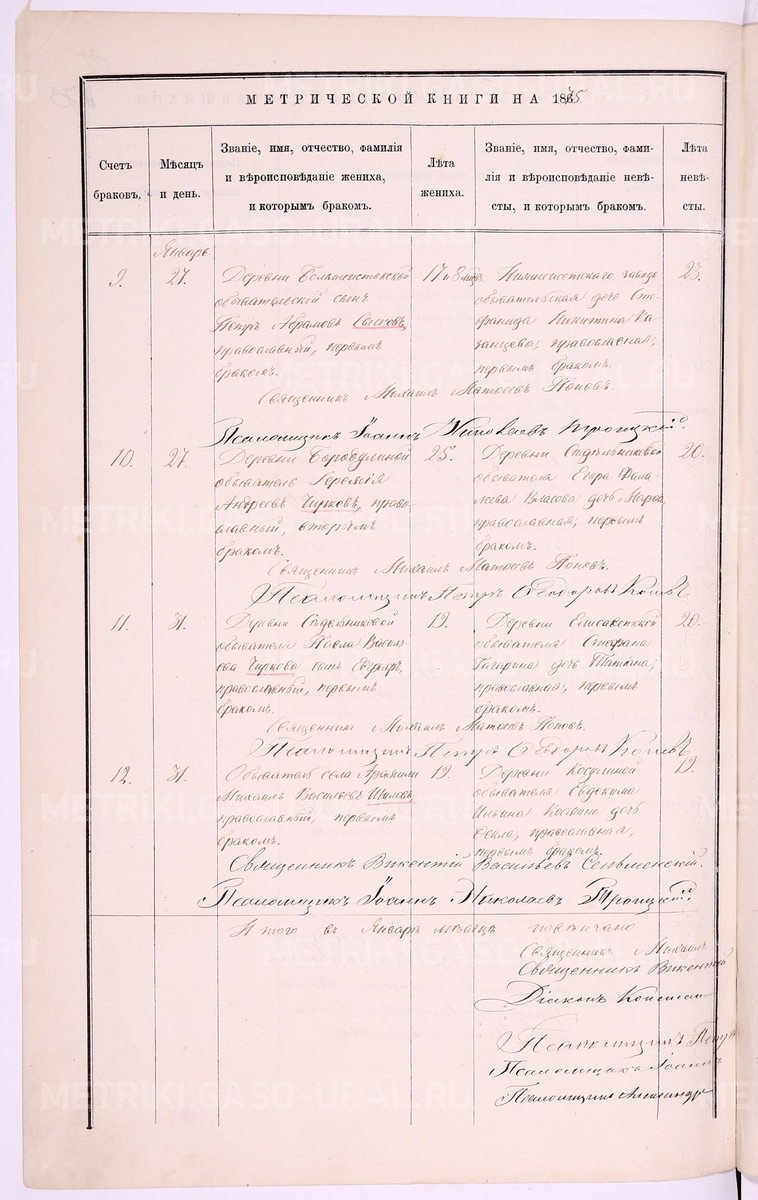 МЕТРИЧЕСКОЙ КНИГИ НА 1875.
Счетъ браковъ.
Мѣсяцъ и день.
Званіе, имя, отчество, фамилія
и вѣроисповѣданіе жениха,
и которымъ бракомъ.
Лѣта жениха.
Званіе, имя, отчество, фами-
лія и вѣроисповѣданіе невѣ-
сты, и которымъ бракомъ.
Лѣта невѣ-
сты.
Январь
9. 27.
Деревни
обывательскій сынъ
Петръ Абрамовъ Сысковъ,
православный, первымъ
бракомъ.
17 и 8 мѣс.
Нижнеисетскаго завода
обывательская дочь Сте-
фанида Никитина Ка-
занцева; православная;
первымъ бракомъ.
23.
Священникъ Михаилъ Матѳеевъ Поповъ.
Псаломщикъ Іоаннъ Николаевъ Троицкій.
10. 27.
Деревни Бородулиной
обыватель Іеремія
Андреевъ Чирковъ, право-
славный, вторымъ
бракомъ.
25.
Деревни Сѣдельниковой
обывателя Егора Фала-
леева Власова дочь Марѳа
православная; первымъ
бракомъ.
20.
Священникъ Михаилъ Матѳеевъ Поповъ.
Псаломщикъ Петръ Ѳеодоровъ
11. 31.
Деревни Сѣдельниковой
обывателя Павла Василь-
ева Чиркова сынъ Евграфъ,
православный, первымъ
бракомъ.
19.
Деревни
обывателя Стефана
Гагарина дочь Татіана;
православная; первымъ
бракомъ.
20.
Священникъ Михаилъ Матѳеевъ Поповъ.
Псаломщикъ Петръ Ѳеодоровъ
12. 31.
Обыватель села Арамили
Михаилъ Васильевъ Шиловъ,
православный, первымъ
бракомъ.
19.
Деревни Косулиной
обывателя Евдокима
Ильина Костина дочь
Ѳекла, православная,
первымъ бракомъ.
19.
Священникъ Викентій Васильевъ
Псаломщикъ Іоаннъ Николаевъ Троицкій.
Итого въ Январѣ мѣсяцѣ повѣнчано
Священникъ Михаилъ
Священникъ Викентій
Діаконъ
Псаломщикъ Петръ
Псаломщикъ Іоаннъ
Псаломщикъ Александръ
METRIKI.GASO-URAL.RU